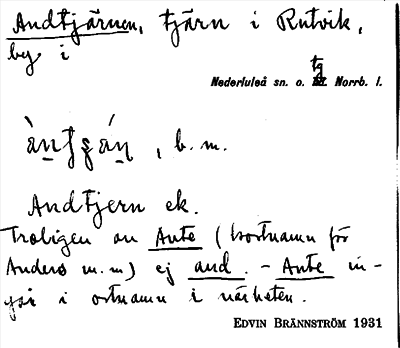 Andtjärnen, tjärn i Rutvik,
by i
Nederluleå sn. o. tg Norrb. l.
, b. m.
Andtjern ek.
Troligen av Ante (kortnamn för
Anders m. m) ej and. - Ante in-
går i ortnamn i närheten.
EDVIN BRÄNNSTRÖM 1931